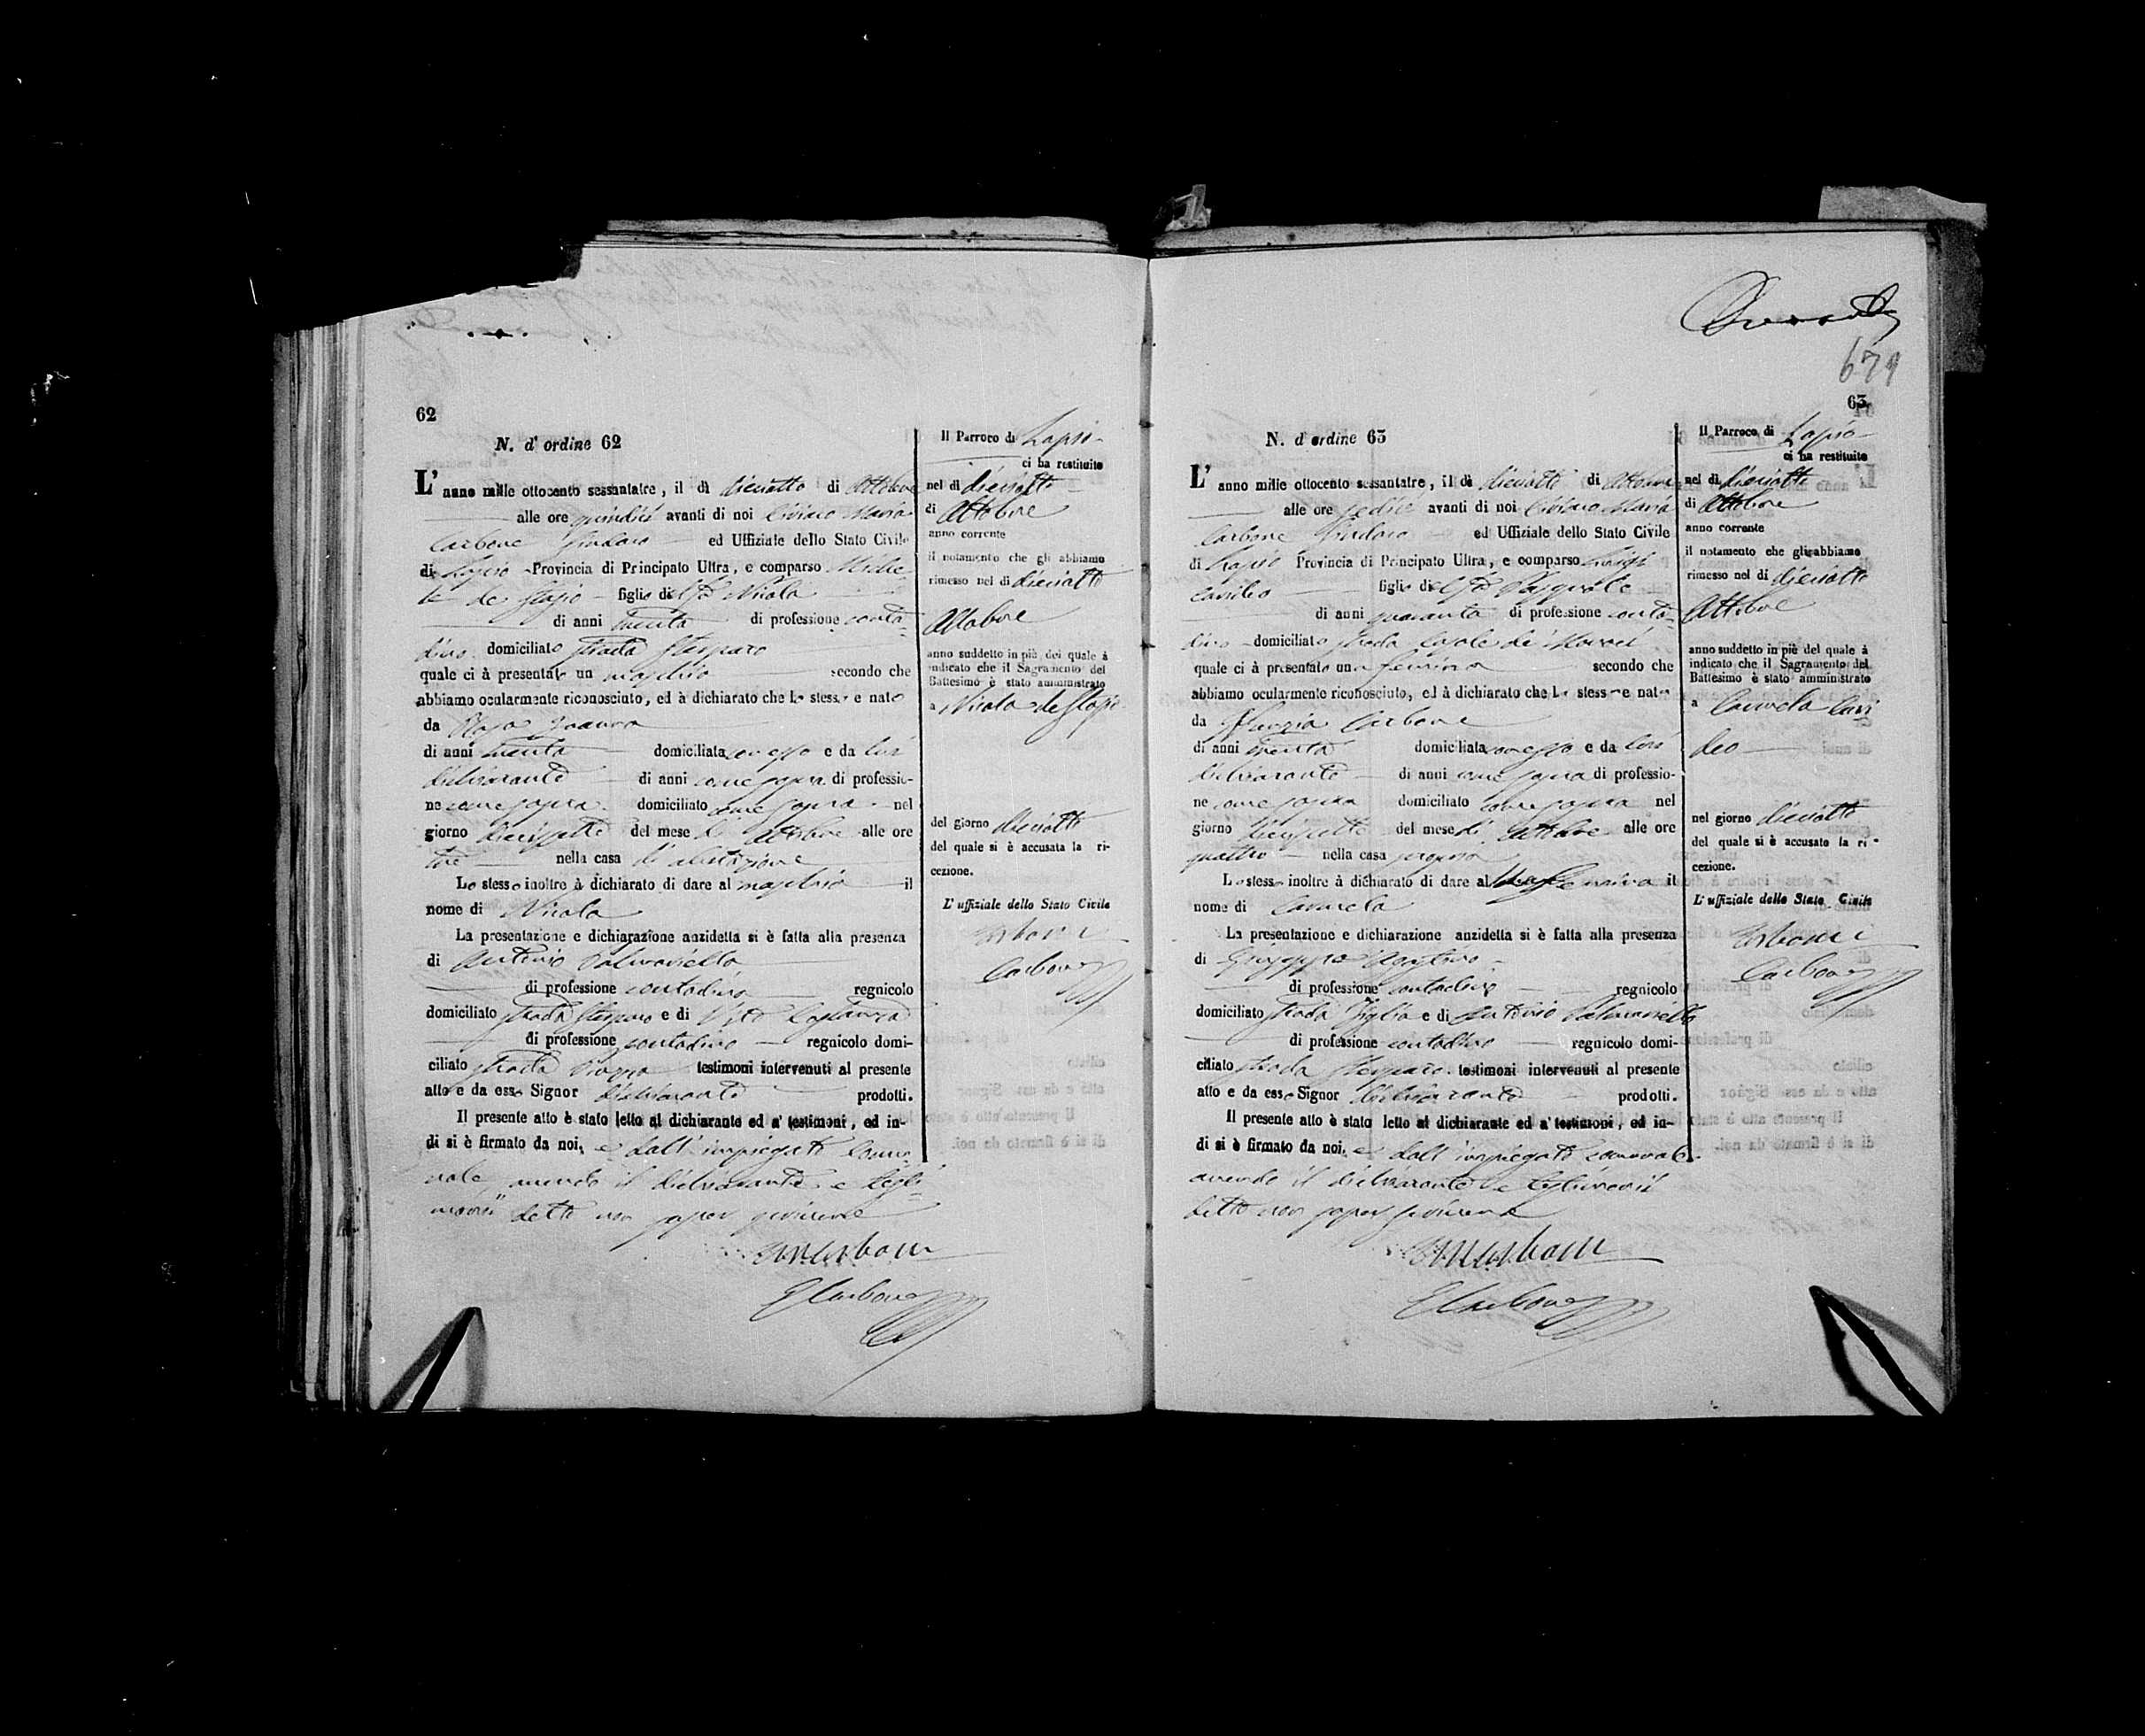 62
N. d' ordine 62
L' anno mille ottocento sessantatre, il dì dieciotto di Ottobre
alle ore quindici avanti di noi Ciriaco Maria
Carbone Sindaco ed Uffiziale dello Stato Civile
di Lapio Provincia di Principato Ultra, e comparso Miche-
le de figlio del fu Nicola
di anni trenta di professione conta-
dino domiciliato strada
quale ci à presentato un maschio secondo che
abbiamo ocularmente riconosciuto, ed à dichiarato che lo stesso e nato
da Rosa
di anni trenta domiciliata con esso e da lui
dichiarante di anni come sopra di professio-
ne come sopra domiciliato come sopra nel
giorno diecisette del mese di Ottobre alle ore
tre nella casa di abitazione
Lo stesso inoltre à dichiarato di dare al maschio il
nome di Nicola
La presentazione e dichiarazione anzidetta si è fatta alla presenza
di Antonio Palmariello
di professione contadino regnicolo
domiciliato strada e di Vito
di professione contadino regnicolo domi-
ciliato strada testimoni intervenuti al presente
atto e da esso Signor dichiarante prodotti.
Il presente atto è stato letto al dichiarante ed a' testimoni, ed in-
di si è firmato da noi, e dall' impiegato comu-
nale avendo il dichiarante e testi-
monii detto non saper scrivere
Carbone
Il Parroco di Lapio
ci ha restituito
nel dì dieciotto
di Ottobre
anno corrente
il notamento che gli abbiamo
rimesso nel dì dieciotto
Ottobre
anno suddetto in piè del quale à
indicato che il Sagramento del
Battesimo è stato amministrato
a Nicola de
del giorno dieciotto
del quale si è accusata la ri-
cezione.
L' uffiziale dello Stato Civile
Carbone
671
63
N. d' ordine 63
L' anno mille ottocento sessantatre, il dì dieciotto di Ottobre
alle ore sedici avanti di noi Ciriaco Maria
Carbone Sindaco ed Uffiziale dello Stato Civile
di Lapio Provincia di Principato Ultra, e comparso Luigi
figlio del fu Pasquale
di anni quaranta di professione conta-
dino domiciliato strada Casale de
quale ci à presentato una femina secondo che
abbiamo ocularmente riconosciuto, ed à dichiarato che la stessa e nata
da Carbone
di anni trenta domiciliata con esso e da lui
dichiarante di anni come sopra di professio-
ne come sopra domiciliato come sopra nel
giorno diecisette del mese di Ottobre alle ore
quattro nella casa propria
Lo stesso inoltre à dichiarato di dare al femina il
nome di Carmela
La presentazione e dichiarazione anzidetta si è fatta alla presenza
di Giuseppe
di professione contadino regnicolo
domiciliato strada e di Antonio Palmariello
di professione contadino regnicolo domi-
ciliato strada testimoni intervenuti al presente
atto e da esso Signor dichiarante prodotti.
Il presente atto è stato letto al dichiarante ed a' testimoni, ed in-
di si è firmato da noi, e dall' impiegato comunale
avendo il dichiarante e testimonii
detto non saper scrivere
Carbone
Il Parroco di Lapio
ci ha restituito
nel dì dieciotto
di Ottobre
anno corrente
il notamento che gli abbiamo
rimesso nel dì dieciotto
Ottobre
anno suddetto in piè del quale à
indicato che il Sagramento del
Battesimo è stato amministrato
a Carmela
nel giorno dieciotto
del quale si è accusato la ri-
cezione.
L' uffiziale dello Stato Civile
Carbone